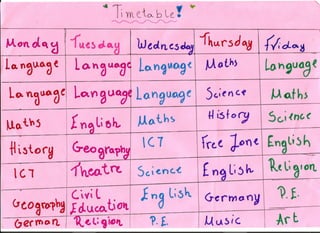 Timetable!
Monday Tuesday Wednesday Thursday Friday
Language Language Language Maths Language
Language Language Language Science Maths
Maths English Maths History Science
History Geography ICT Free Zone English
ICT Theatre Science English Religion
Geography Civil Education English Germany P.E.
German Religion P.E. Music Art